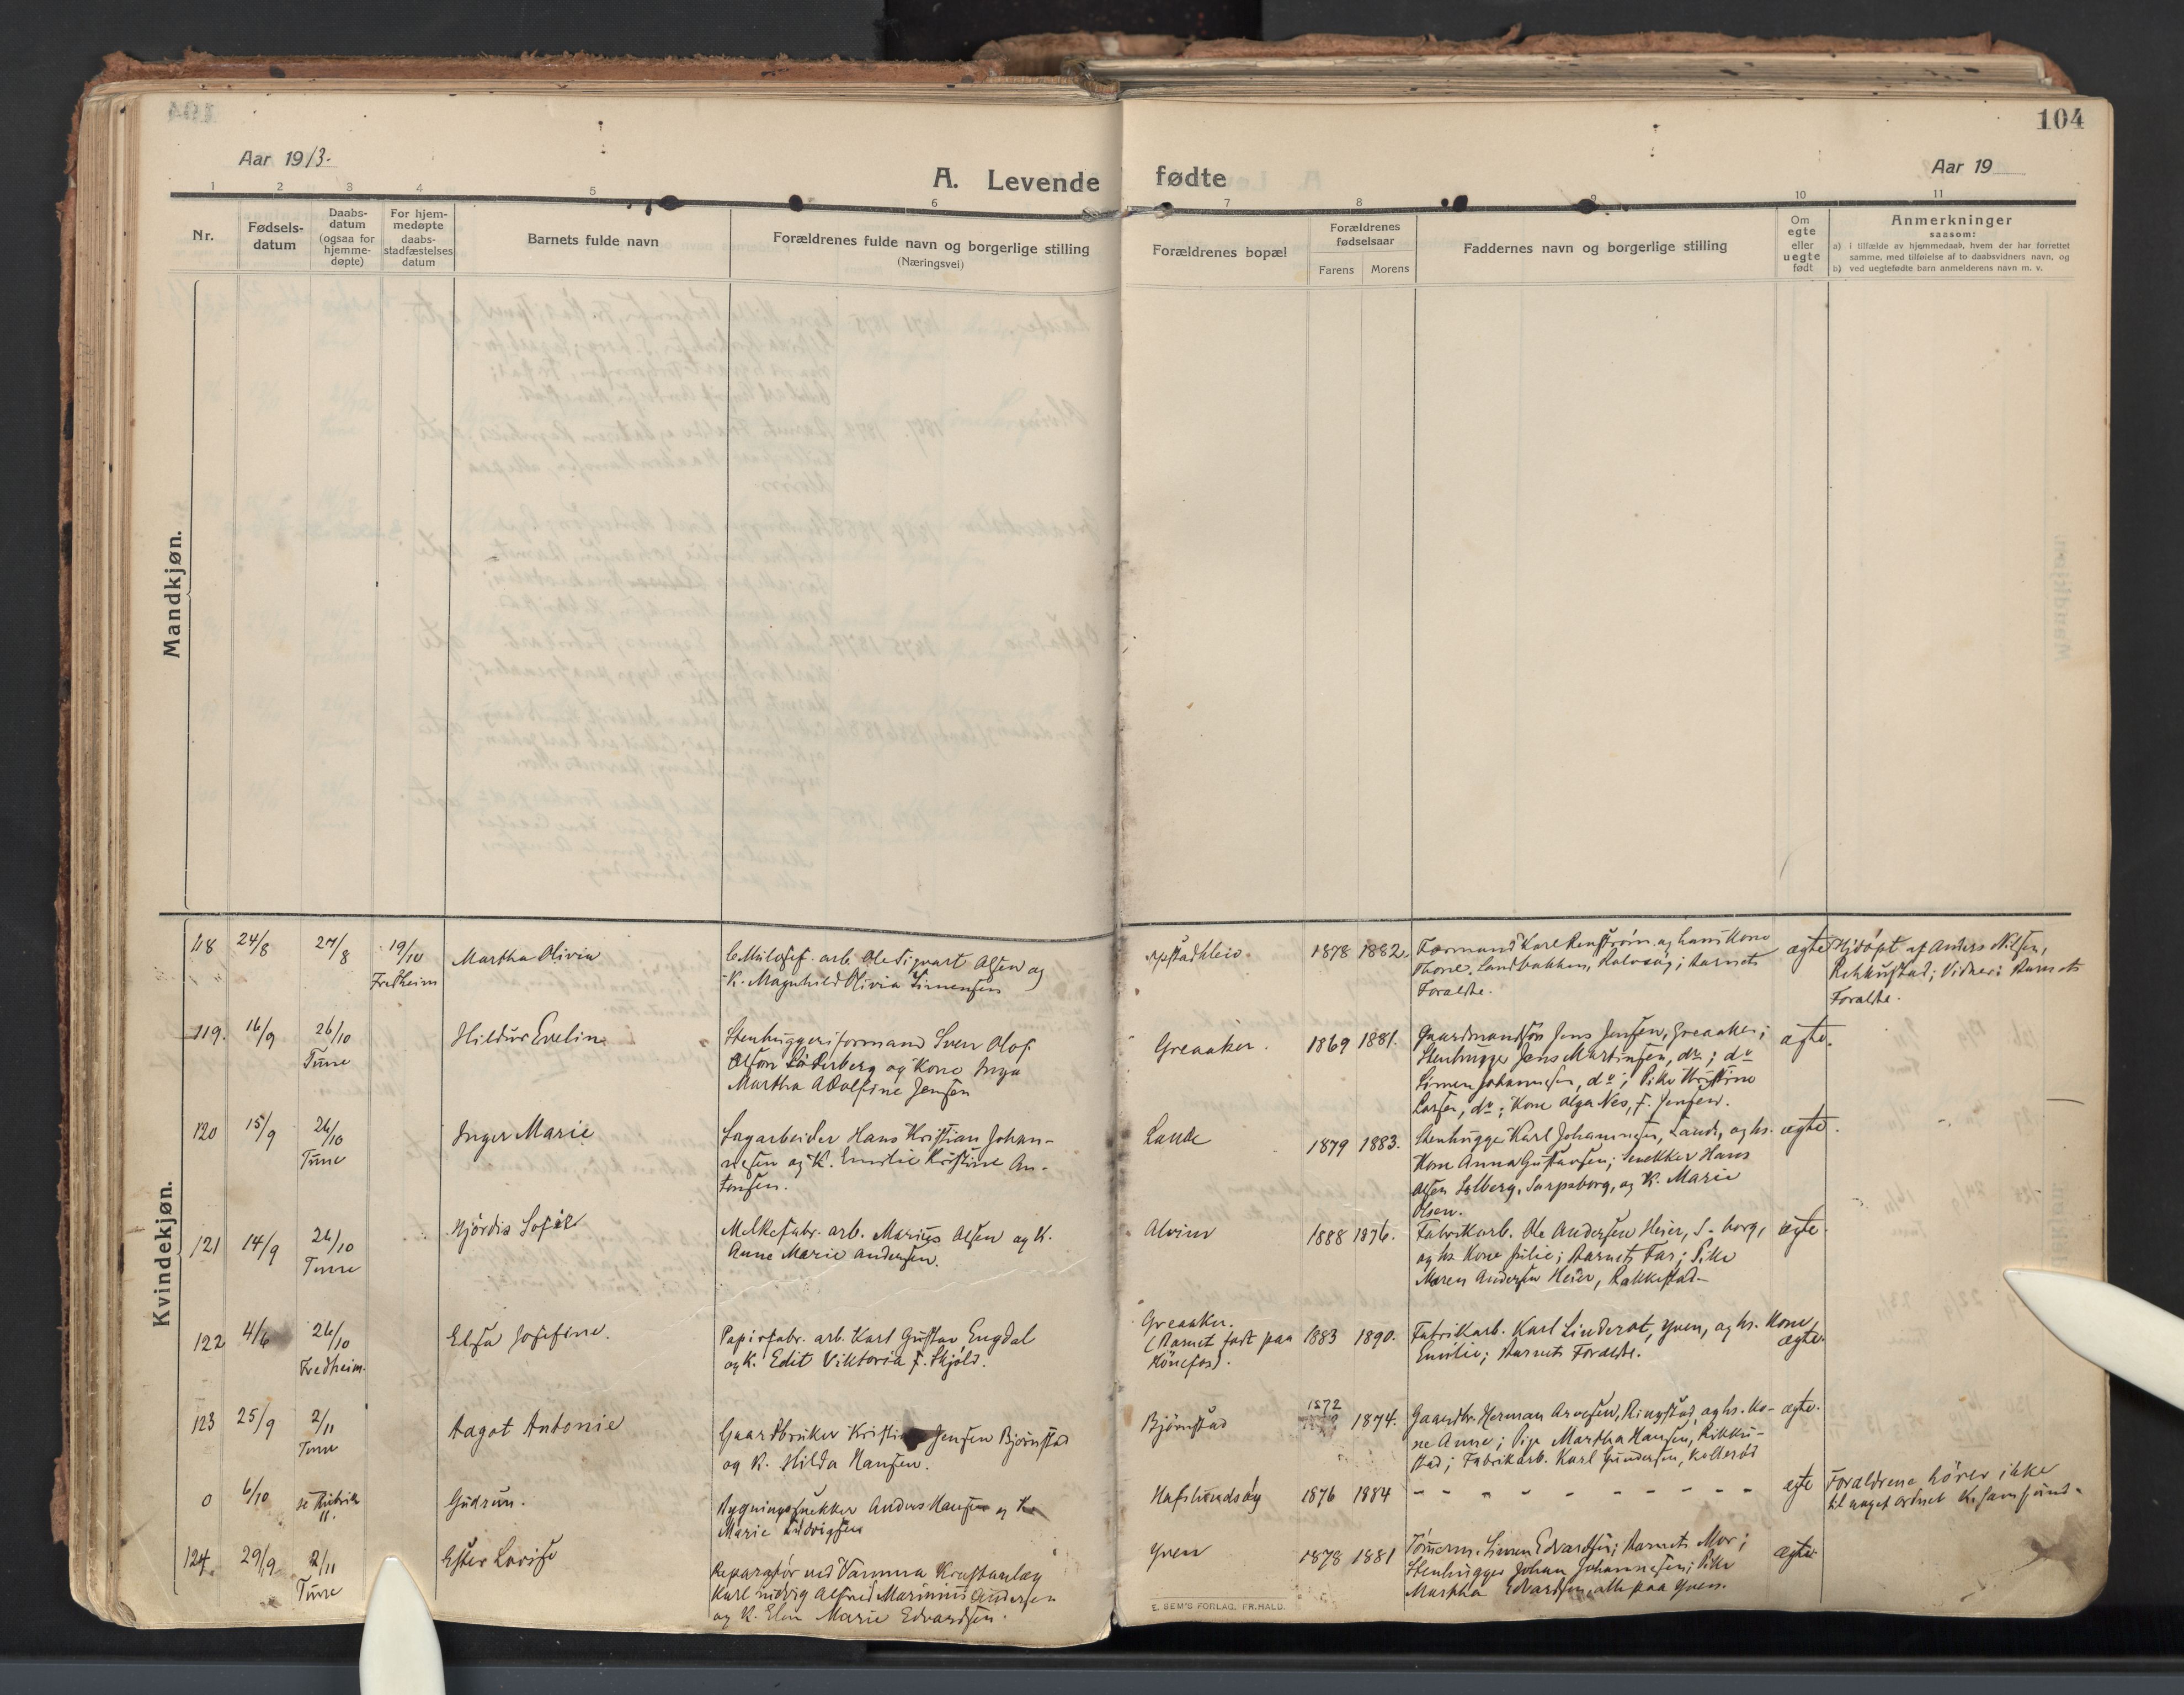 104
Aar 1913.
A. Levende fødte
Aar 19
1 2 3 4 5 6 7 8 9 10 11
Nr.
Fødsels-
datum
Daabs-
datum
(ogsaa for
hjemme-
døpte)
For hjem-
medøpte
daabs-
stadfæstelses
datum
Barnets fulde navn
Forældrenes fulde navn og borgerlige stilling
(Næringsvei)
Forældrenes bopæl
Forældrenes
fødselsaar
Farens Morens
Faddernes navn og borgerlige stilling
Om
egte
eller
uegte
født
Anmerkninger
saasom:
a) i tilfælde av hjemmedaab, hvem der har forrettet
samme, med tilføielse af to daabsvidners navn, og
b) ved uegtefødte barn anmelderens navn m. v.
Mandkjøn.
Kvindekjøn.
118 24/8 27/8 19/10
Fredheim
Martha Olivia
arb. Ole Sigvart Olsen og
K. Magnhild Olivia Simensen
1878 1882.
Formand Karl Renstrøm og hans Kone
Thone, Landbakken, ; Barnets
Foraldre.
ægte
Hjdöpt af Anders Nilsen,
; Vidner: Barnets
Foraldre.
119. 16/9 26/10
Tune
Hildur Evelin
Stenhuggeriformand Sven Olof
Olson Söderberg og Kone Inga
Martha Adolfine Jensen
Greaaker.
1869 1881.
Gaardmandssøn Jens Jensen, Greaaker;
Stenhugger Jens Martinsen, do; do
Simen Johannesen, do; Pike Kristine
Larsen, do; Kone Olga Nes, f. Jensen.
ægte.
120 15/9 26/10
Tune
Inger Marie
Sagarbeider Hans Kristian Johan-
nesen og K. Emilie Kristine An-
tonsen.
Lande
1879 1883.
Stenhugger Karl Johannesen, Lande, og hs.
Kone Anna Gustavsen; Snekker Hans
Olsen Solberg, Sarpsborg, og K. Marie
Olsen.
ægte.
121 14/9 26/10
Tune
Hjördis Sofie
Melkefabr. arb. Marius Olsen og K.
Anne Marie Andersen.
Alvim
1888 1876.
Fabrikarb. Ole Andersen Heier, S-borg,
og hs. Kone Julie; Barnets Far; Pike
Maren Andersen Heier, Rakkestad-
ægte.
122 4/6 26/10
Fredheim.
Elsa Josefine.
Papirfabr. arb. Karl Gustav Engdal
og K. Edit Viktoria f. Skjöld.
Greaaker.
(Barnet født paa
Hönefos).
1883 1890.
Fabrikarb. Karl Linderot, Yven, og hs. Kone,
Emilie; Barnets Forældre.
ægte.
123 25/9 2/11
Tune
Aagot Antonie
Gaardbruker Jensen Bjørnstad
og K. Hilda Hansen.
Bjørnstad
1872
1874.
Gaardbr. Herman Arvesen, Ringstad, og hs. Ko-
ne Anne; Pige Martha Hansen,
stad; Fabrikarb. Karl Gundersen,
ægte.
0 6/10 se Rubrik
11.
Gudrun.
Bygningssnekker Anders Hansen og K.
Marie Ludvigsen
Hafslundsøy
1876 1884
- - - - - - - - - -
egte
Foraldrene hörer ikke
til noget ordnet
124. 29/9 2/11
Tune
Ester Lovise
Reparatør ved Vamma Kraftanlæg
Karl Ludvig Alfred Marinius Andersen
og K. Elin Marie Edvardsen.
Yven
1878 1881
Tömerm. Simen Edvardsen; Barnets Mor;
Stenhugger Johan Johannesen; Pike
Martha Edvardsen, alle paa Yven.
ægte
E. SEM'S FORLAG, FR.HALD.